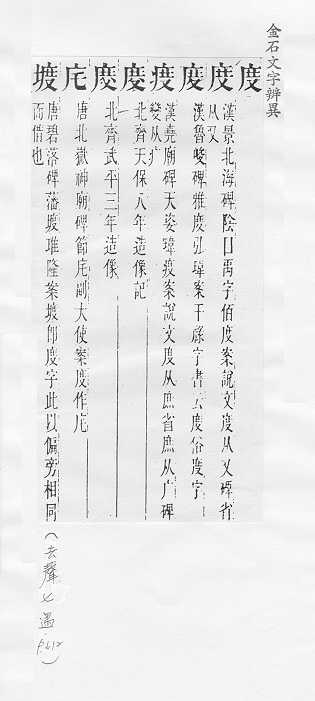 金石文字辨異
度
度 漢景北海碑陰囗禹字佰度案說文度从又碑省
从又
度 漢魯峻碑雅度弘瑋案干祿字書云度俗度字
疫 漢堯廟碑天姿瑋疫案說文度从庶省庶从广碑
變从疒
慶 北齊天保八年造像記
北齊武平三年造像
庀 唐北嶽神廟碑節庀副大使案度作庀
唐碧落碑藩維隆案即度字此以偏旁相同
而借也
(去聲七遇 p.612)